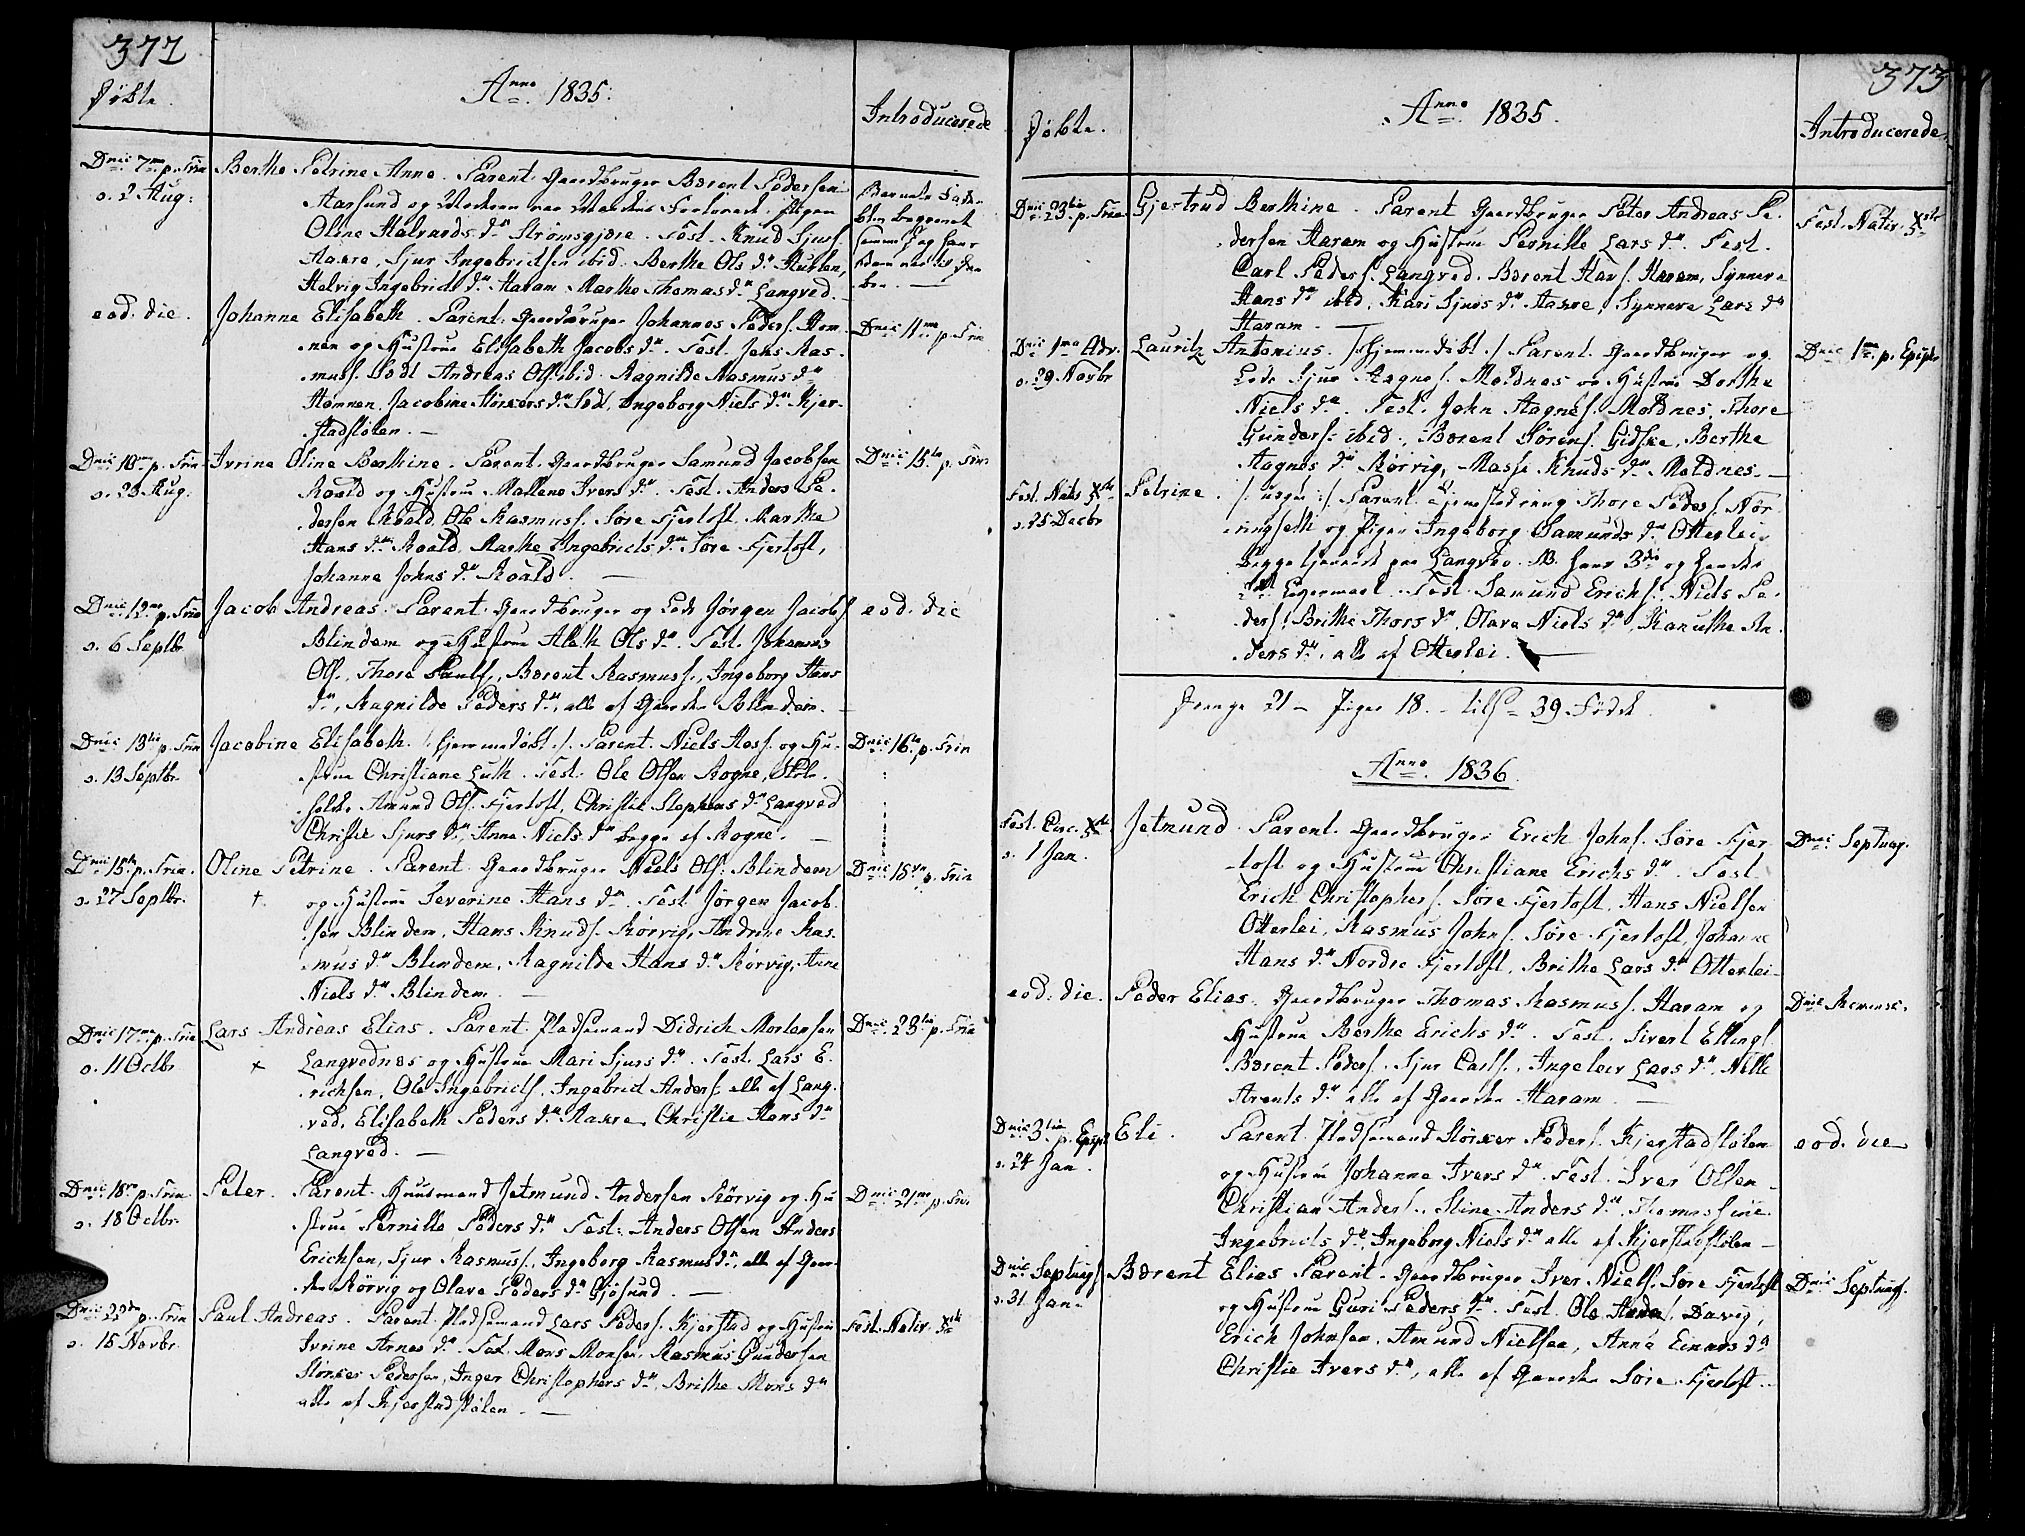 372
Døbte.
Anno 1835.
Introducerede
Dnic 7ma p. Trin
o. 2 Aug:
Berthe Petrine Anne. Parent. Gaardbruger Bærent Pedersen
Aarsund og
Oline Halvards dr Strømsgjere. Test. Knud Sjurs.
Aakre, Sjur Ingebrictsen ibid. Berthe Ols dr
Helvig Ingebricts dr Haram Marthe Thomas dr Langved.
eod. die.
Johanne Elisabeth. Parent. Gaardbruger Johannes Peders. Ham-
nen og Hustrue Elisabeth Jacobs dr. Test. Jens Ras-
mus. Andreas Ols. ibid. Ragnilde Rasmus dr
Hamnen, Jacobine dr Ingeborg Niels dr Kjer-
stadstølen. —
Dnic 11ma p. Trin
Dnic 10ma p. Trin
o. 23 Aug.
Ivrine Oline Berthine. Parent. Gaardbruger Samund Jacobsen
Roald og Hustrue Mallene Ivers dr. Test. Anders Pe-
dersen Roald, Ole Rasmus. Søre Fjertoft, Marthe
Hans dr Roald, Marthe Ingebricts dr Søre Fjertoft,
Johanne Johns dr Roald. —
Dnic 15ta p. Trin.
Dnic 12ma p. Trin
o. 6 Septbr.
Jacob Andreas. Parent. Gaardbruger og Lods Jørgen Jacobs.
Blindem og Hustrue Aleth Ols dr. Test. Johannes
Ols., Thore Pauls., Bærent Rasmus., Ingeborg Hans
dr, Ragnilde Peders dr, alle af Gaarden Blindem. —
eod. die
Dnic 13tia p. Trin
o. 13 Septbr.
Jacobine Elisabeth. /: hjemmedøbt :/. Parent. Niels Aas. og Hu-
strue Christiane Luth. Test. Ole Olsen Rogne,
Amund Ols. Fjertoft, Christie Stephens dr Langved
Christie Sjurs dr, Anne Niels dr begge af Rogne. —
Dnic 16ta p. Trin
Dnic 15ta p. Trin.
o. 27 Septbr.
+
Oline Petrine. Parent. Gaardbruger Niels Ols. Blindem
og Hustrue Severine Hans dr. Test. Jørgen Jacob-
sen Blindem, Hans Knuds. Rørvig, Andrine Ras-
mus dr Blindem, Ragnilde Hans dr Rørvig, Anne
Niels dr Blindem. —
Dnic 18va p. Trin
Dnic 17ma p. Trin
o. 11 Octbr.
+
Lars Andreas Elias. Parent. Pladsemand Didrich Mortensen
Langvednes og Hustrue Mari Sjurs dr. Test. Lars E-
richsen, Ole Ingebricts., Ingebrict Anders. alle af Lang-
ved, Elisabeth Peders dr Aakre, Christie Hans dr
Langved. —
Dnic 23tia p. Trin
Dnic 18va p. Trin
o. 18 Octbr.
Peter. Parent. Huusmand Jetmund Andersen Rørvig og Hu-
strue Pernille Peders dr. Test. Anders Olsen Anders
Erichsen, Sjur Rasmus., Ingeborg Rasmus dr, alle af Gaar-
den Rørvig og Olave Peders dr Gjøsund. —
Dnic 21ma p. Trin.
p. Trin
o. 15 Novbr.
Paul Andreas. Parent. Pladsemand Lars Peders. Kjerstad og Hustrue
Ivrine Arnes dr. Test. Mons Monsen, Rasmus Gundersen
Størker Pedersen, Inger Christophers dr, Brithe Mons dr
alle af Kjerstadstølen. —
Fest. Nativ. Xsti
373
Døbte.
Anno 1835.
Introducerede.
Dnic 23tia p. Trin.
Gjertrud Berthine. Parent. Gaardbruger Peter Andreas Pe-
dersen Haram og Hustrue Pernille Lars dr. Test.
Carl Peders. Langved, Bærent Hans. Haram, Synneve
Hans dr ibid. Kari Sjurs dr Aakre, Synneve Lars dr
Haram. —
Fest. Nativ. Xsti
Dnic 1ma Adv.
o. 29 Novbr
Lauritz Antonius. /: hjemmedøbt :/ Parent. Gaardbruger og
Lods Sjur Aagnes. Moldnes og Hustrue Dorthe
Niels dr. Test. John Aagnes. Moldnes, Thore
Gunders. ibid., Bærent Sørens. Gidske, Berthe
Aagnes dr Rørvig, Knuds dr Moldnes. —
Dnic 1ma p. Epiph
Fest. Nativ. Xsti
o. 25 Decbr
Petrine. /: uægte :/ Parent. Thore Peders. Nør-
og Pigen Ingeborg Samunds dr Otterlei
begge tjenende paa Langved. NB. hans 3die og hendes
Leiermaal. Test. Samund Erichs., Niels Pe-
ders., Brithe Thors dr, Olave Niels dr, Kanuthe An-
ders dr, alle af Otterlei. —
Drenge 21 – Piger 18. – tils. 39 Fødte.
Anno 1836.
Fest. Circ. Xsti
o. 1 Jan.
Jetmund. Parent. Gaardbruger Erich Johns. Søre Fjer-
toft og Hustrue Christiane Erichs dr. Test.
Erich Christophers. Søre Fjertoft, Hans Nielsen
Otterlei, Rasmus Johns. Søre Fjertoft, Johanne
Hans dr Nordre Fjertoft, Brithe Lars dr Otterlei.
Dnic Septuag.
eod. die.
Peder Elias. Gaardbruger Thomas Rasmus. Haram og
Hustrue Berthe Erichs dr. Test. Sivert Ellings.
Bærent Peders. Sjur Carls., Ingeleiv Lars dr, Nille
Arents dr alle af Gaarden Haram. —
Dnic
Dnic 3tia p. Epiph
o. 24 Jan.
Eli. Parent. Pladsemand Størker Peders. Kjerstadstølen
og Hustrue Johanne Ivers dr. Test. Iver Olsen
Christian Anders., Stine Anders dr, Thomassine
Ingebricts dr, Ingeborg Niels dr alle af Kjerstadstølen —
eod. die
Dnic Septuag.
o. 31 Jan.
Bærent Elias Parent. Gaardbruger Iver Niels. Søre Fjertoft
og Hustrue Guri Peders dr. Test. Ole Davig,
Erich Johnsen, Amund Nielsen, Anne Einars dr
Christie Ivers dr, alle af Gaarden Søre Fjertoft.
Dnic Septuag.